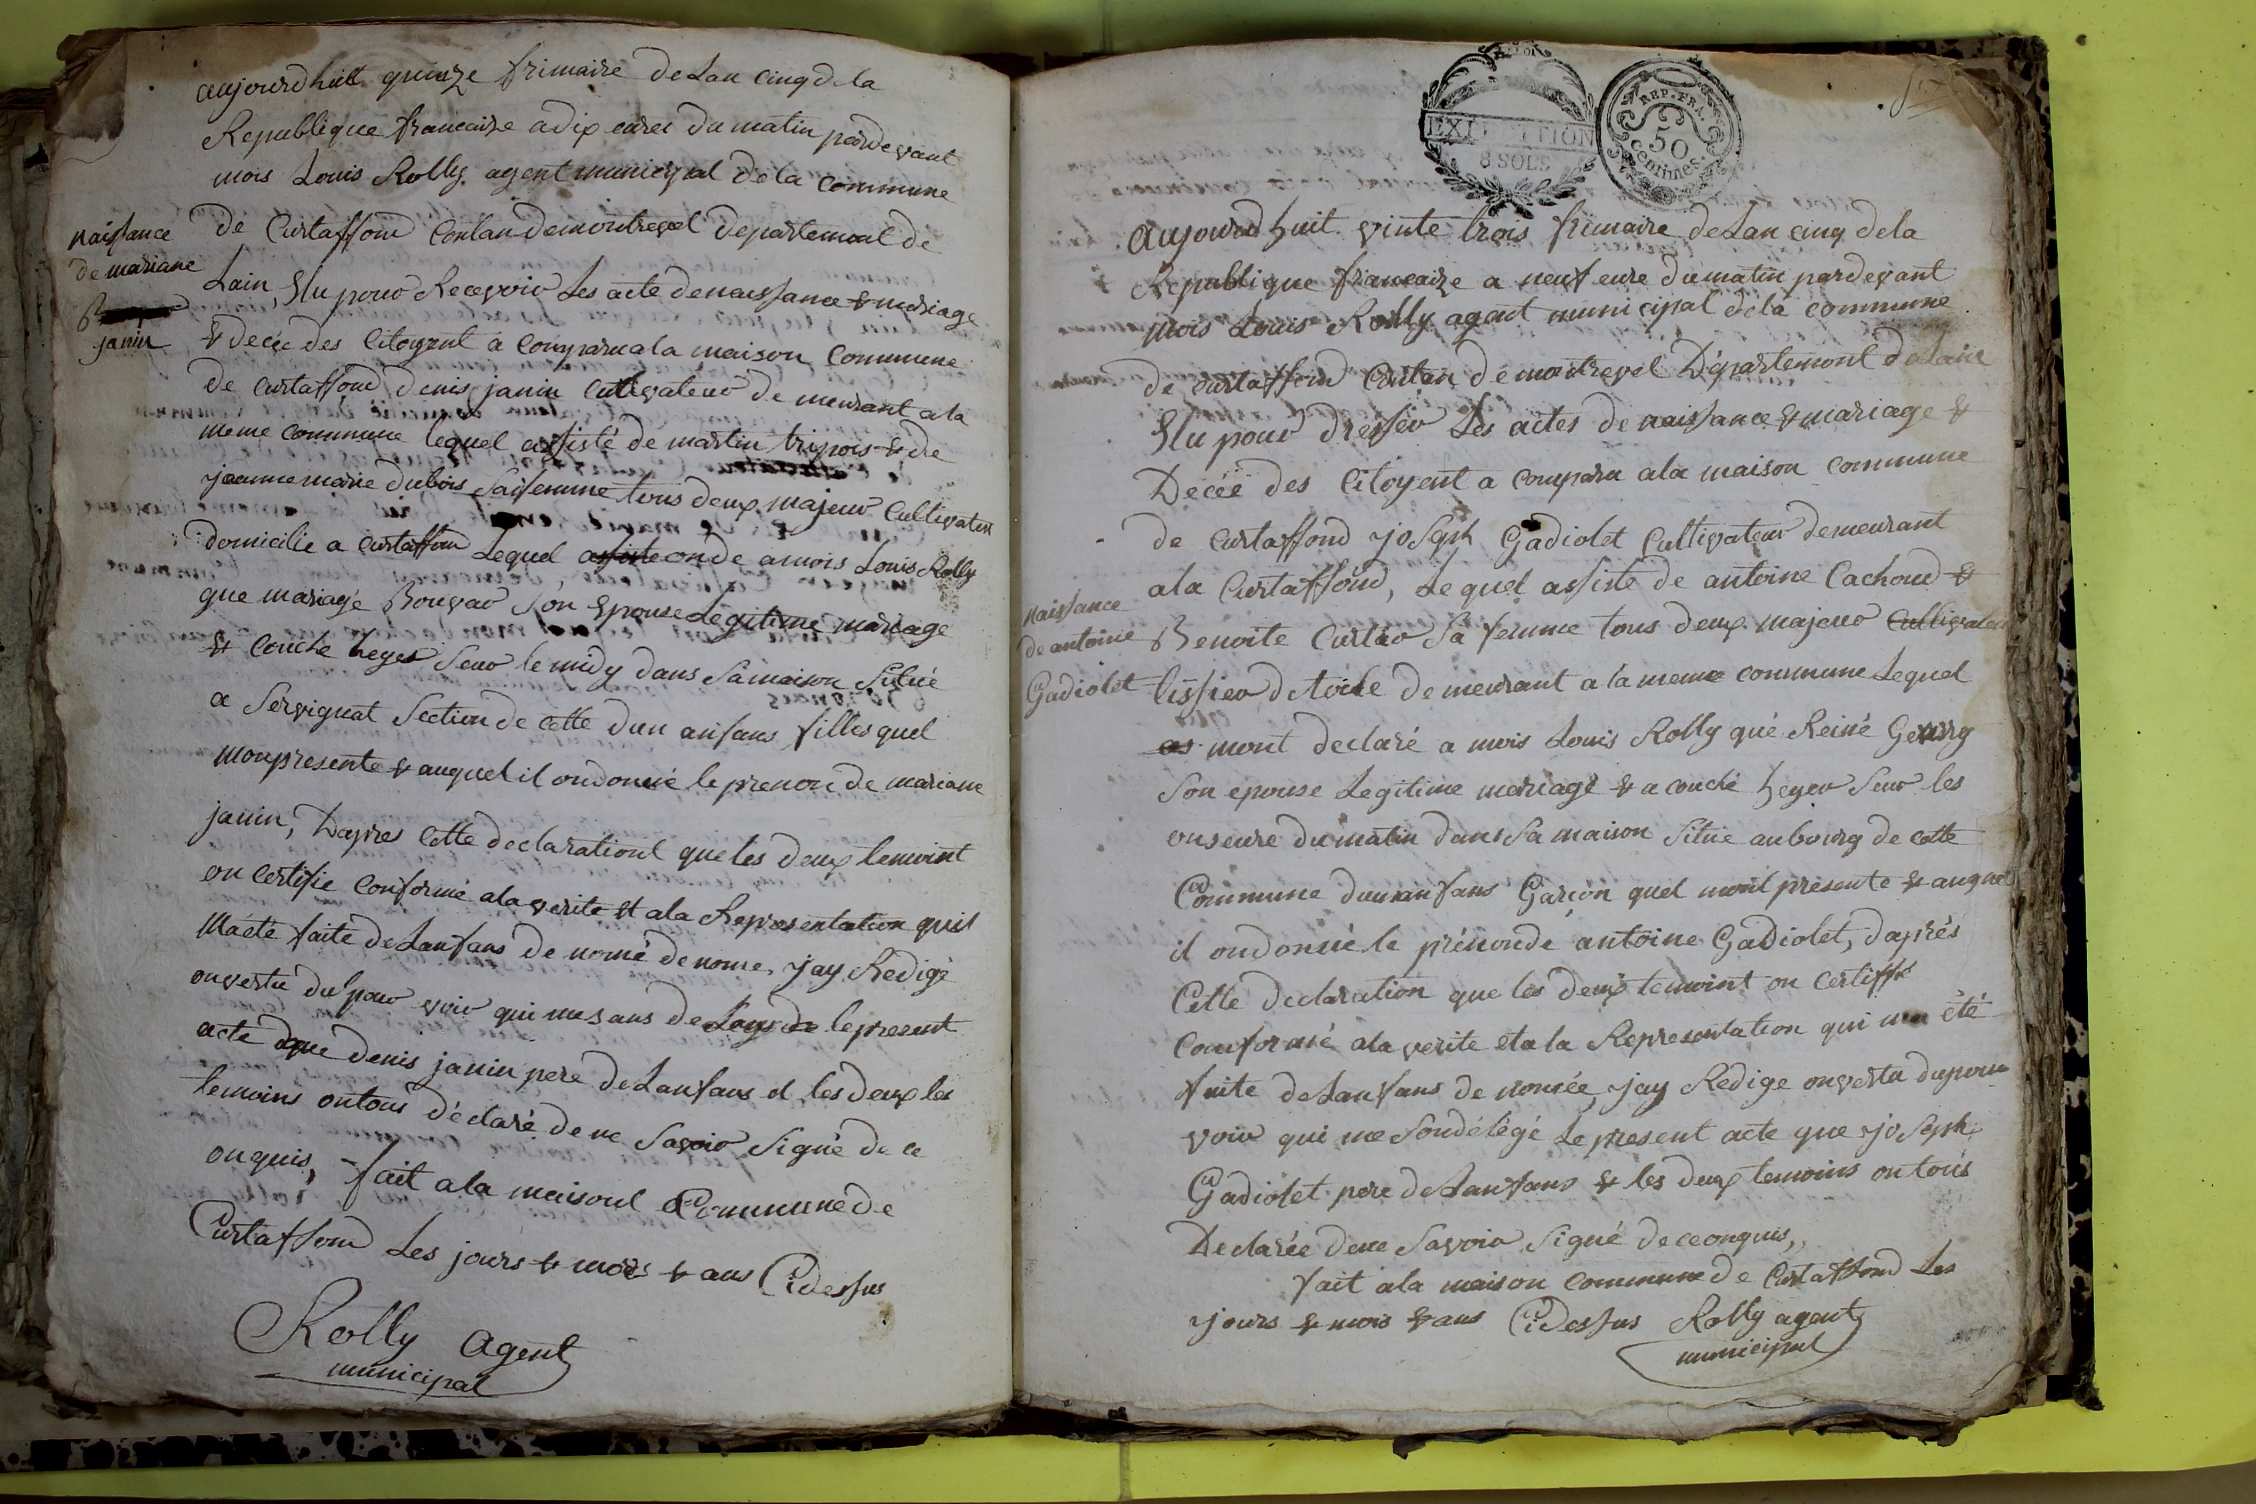 aujourdhuit quinze frimaire de Lan cinq de la
Republique francaize a dix eures du matin pardevant
mois Louis Rolly agent municipal de la commune
de Curtaffond Contan demontrevel departement de
Lain, Elu pour Recevoir Les acte denaissance & mariage
& decée des Citoyent a comparu ala maison Commune
de Curtaffond denis janin cultivateur de meurant ala
meme commune lequel assisté de martin & de
jeanne marie dubois Sa femme tous deux majeur Cultivateur
domicilie a Curtaffon Lequel onde a mois Louis Rolly
que mariage Bouvar Son Epouse Legitime mariage
& couche heyer Seur le midy dans Sa maison Situé
a Servignat Section de cette dun anfans filles quel
monpresente & auquel il ondonné le prenon de mariane
janin, Dapres Cette declarationt que les deux temoint
on Certifie Conformé ala verite Et ala Representation quil
Maété faite de Lanfans de nomé denome, jay Redigé
onvertu du pour voir qui mes ans de Loyé de le present
acte que denis janin pere de Lanfans et les deux les
temoins ontous déclaré de ne Savoir Signé de ce
onquis, fait ala maisont Commune de
Curtaffond Les jours & mois & ans Cidessus
Rolly Agent
municipal
naissance
de mariane
janin
EXPEDITION
8 SOLS
REP. FRA.
50
centimes.
Aujourdhuit vinte trois frimaire de Lan cinq dela
Republique francaize a neuf eure du matin pardevant
mois Louis Rolly agent municipal dela commune
de curtaffond Contan de montrevel Département de Lain
Elu pour dresser Les actes de naissance & mariage &
Decéé des Citoyent a comparu ala maison commune
de Curtaffond joSeph Gadiolet Cultivateur demeurant
ala Curtaffond, Lequel assisté de antoine Cachoud &
Benoite Curtar Sa femme tous deux majeur Cultivateur
tissier detoile demeurant a la meme commune Lequel
mont declaré a mois Louis Rolly qué Reiné
Son epouse Legitime mariagé & a couché heyer Seur les
onseure dumatin dans Sa maison Situé aubourg de cette
Commune dunanfans Garçon quel mont presente & auquel
il ondonné le prénonde antoine Gadiolet, daprés
Cette declaration que les deux temoint on Certiffié
Conformé ala verite et a la Representation qui ma été
faite de Lanfans de nomée, jay Redige onvertu dupour
voir qui me Sondélégé Le present acte que joSeph
Gadiolet pere de Lanfans & les deux temoins on tous
Declarée dene Savoir Signé de ceonquis,
fait ala maison commune de Curtaffond Les
jours & mois & ans Cidessus Rolly agent
municipal
naissance
de antoine
Gadiolet